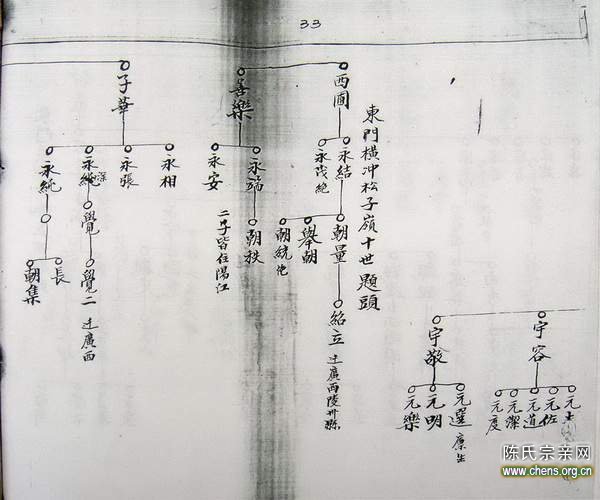 33
東門橫冲松子嶺十世題頭
西圃
永結
永茂絶
朝量
舉朝
朝統
紹立
迁廣西陵卅縣
善樂
永端
永安
朝秩
二子皆住陽江
子華
永相
永張
永統
覺
覺二
迁廣西
長
朝集
宇容
元佐
元道
元潔
元度
宇敬
元選
廪生
元明
元樂
陈氏宗亲网
www.chens.org.cn